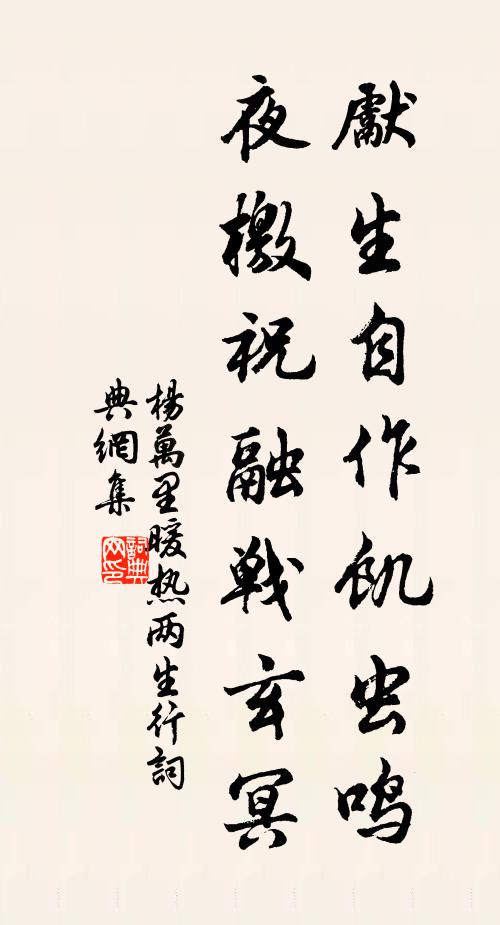 獻生自作飢虫鳴
夜檄祝融戰玄冥
楊萬里暖热两生行詞
典網集
詞典网印